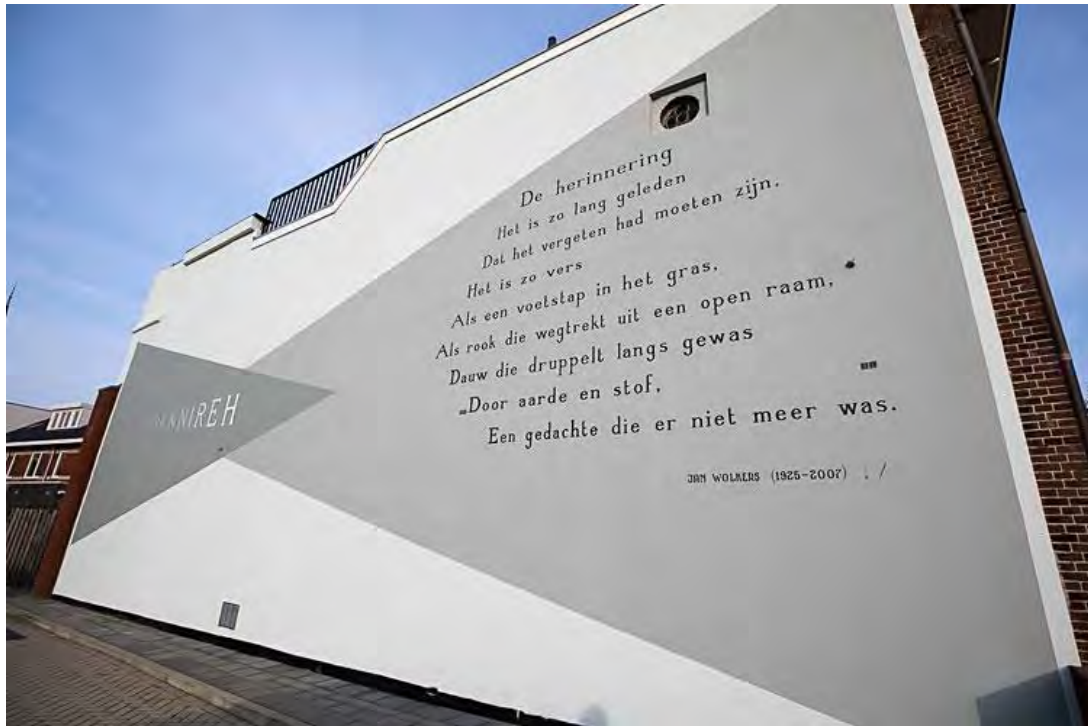 De herinnering
Het is zo lang geleden
Dat het vergeten had moeten zijn.
Het is zo vers
Als een voetstap in het gras,
Als rook die wegtrekt uit een open raam,
Dauw die druppelt langs gewas
Door aarde en stof,
Een gedachte die er niet meer was.
JAN WOLKERS (1925-2007)